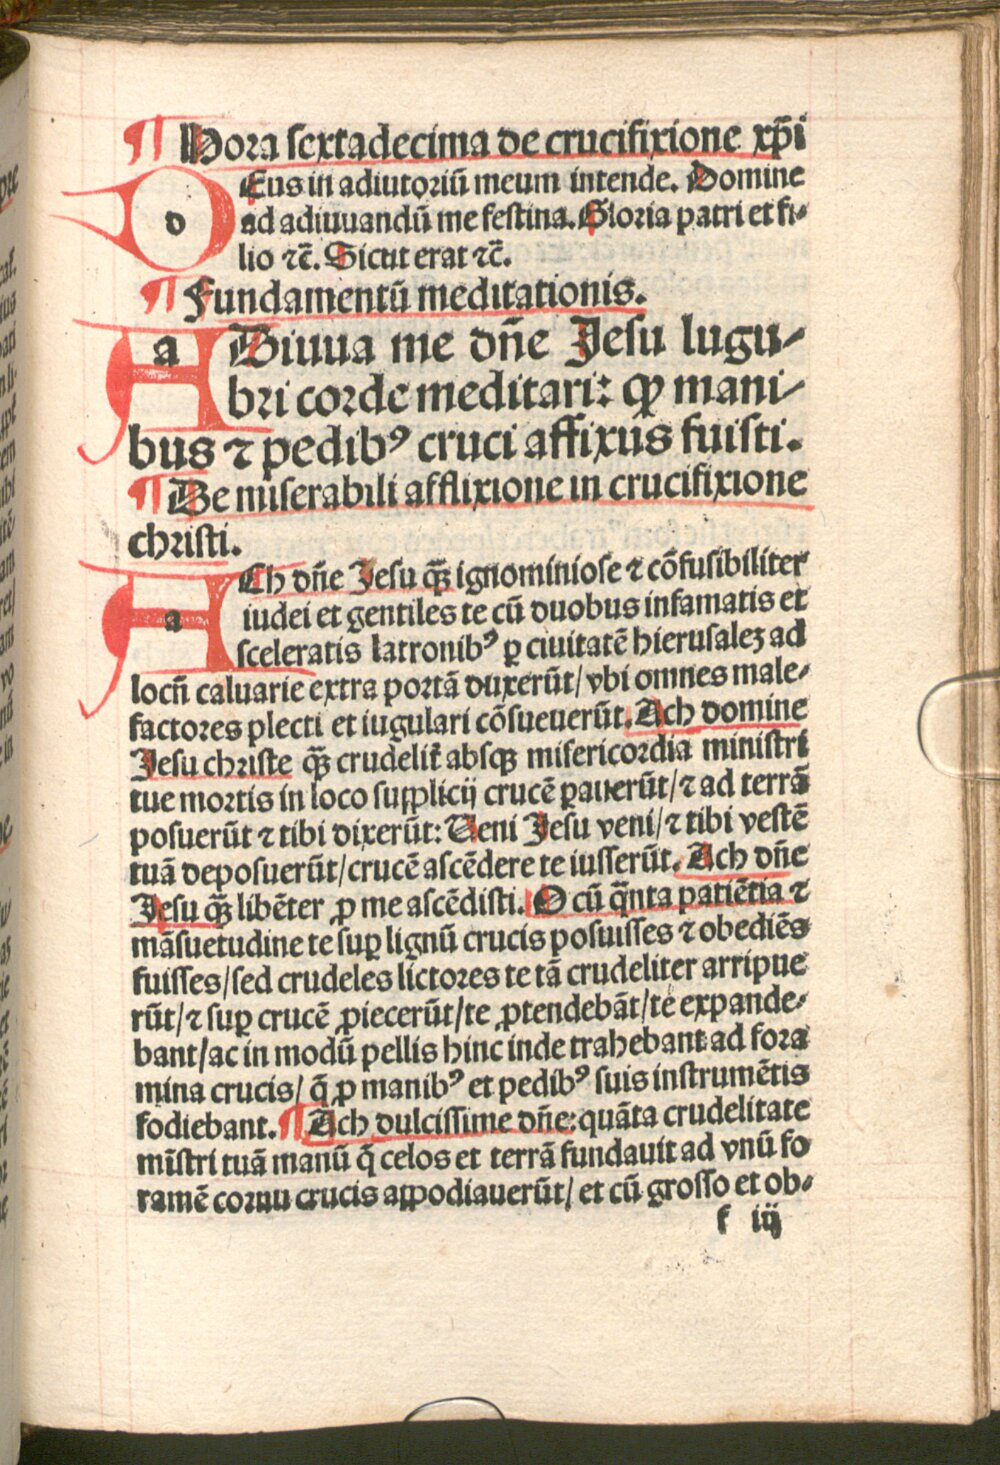 ¶ Hora sextadecima de crucifixione xp̄i
DEus in adiutoriū meum intende. Domine
ad adiuuandū me festina. Gloria patri et fi-
lio ⁊c̄. Sicut erat ⁊c̄.
¶ Fundamentū meditationis.
ADiuua me dn̄e Jesu lugu-
bri corde meditari: ꝙ mani-
bus ⁊ pedibꝰ cruci affixus fuisti.
¶ De miserabili afflixione in crucifixione
christi.
ACh dn̄e Jesu q̄ȝ ignominiose ⁊ cōfusibiliter
iudei et gentiles te cū duobus infamatis et
sceleratis latronibꝰ ꝑ ciuitatē hierusaleȝ ad
locū caluarie extra portā duxerūt/ vbi omnes male-
factores plecti et iugulari cōsueuerūt. Ach domine
Jesu christe q̄ȝ crudelit̄ absqȝ misericordia ministri
tue mortis in loco supplicij crucē ꝑauerūt/ ⁊ ad terrā
posuerūt ⁊ tibi dixerūt: Veni Jesu veni/ ⁊ tibi vestē
tuā deposuerūt/ crucē ascēdere te iusserūt. Ach dn̄e
Jesu q̄ȝ libēter ꝓ me ascēdisti. O cū q̄nta patiētia ⁊
māsuetudine te suꝑ lignū crucis posuisses ⁊ obediēs
fuisses/ sed crudeles lictores te tā crudeliter arripue
rūt/ ⁊ suꝑ crucē ꝓiecerūt/ te ꝓtendebāt/ te expande-
bant/ ac in modū pellis hinc inde trahebant ad fora
mina crucis/ q̄ ꝓ manibꝰ et pedibꝰ suis instrumētis
fodiebant. ¶ Ach dulcissime dn̄e: quāta crudelitate
mīstri tuā manū q̄ celos et terrā fundauit ad vnū fo
ramē cornu crucis appodiauerūt/ et cū grosso et ob-
f iij